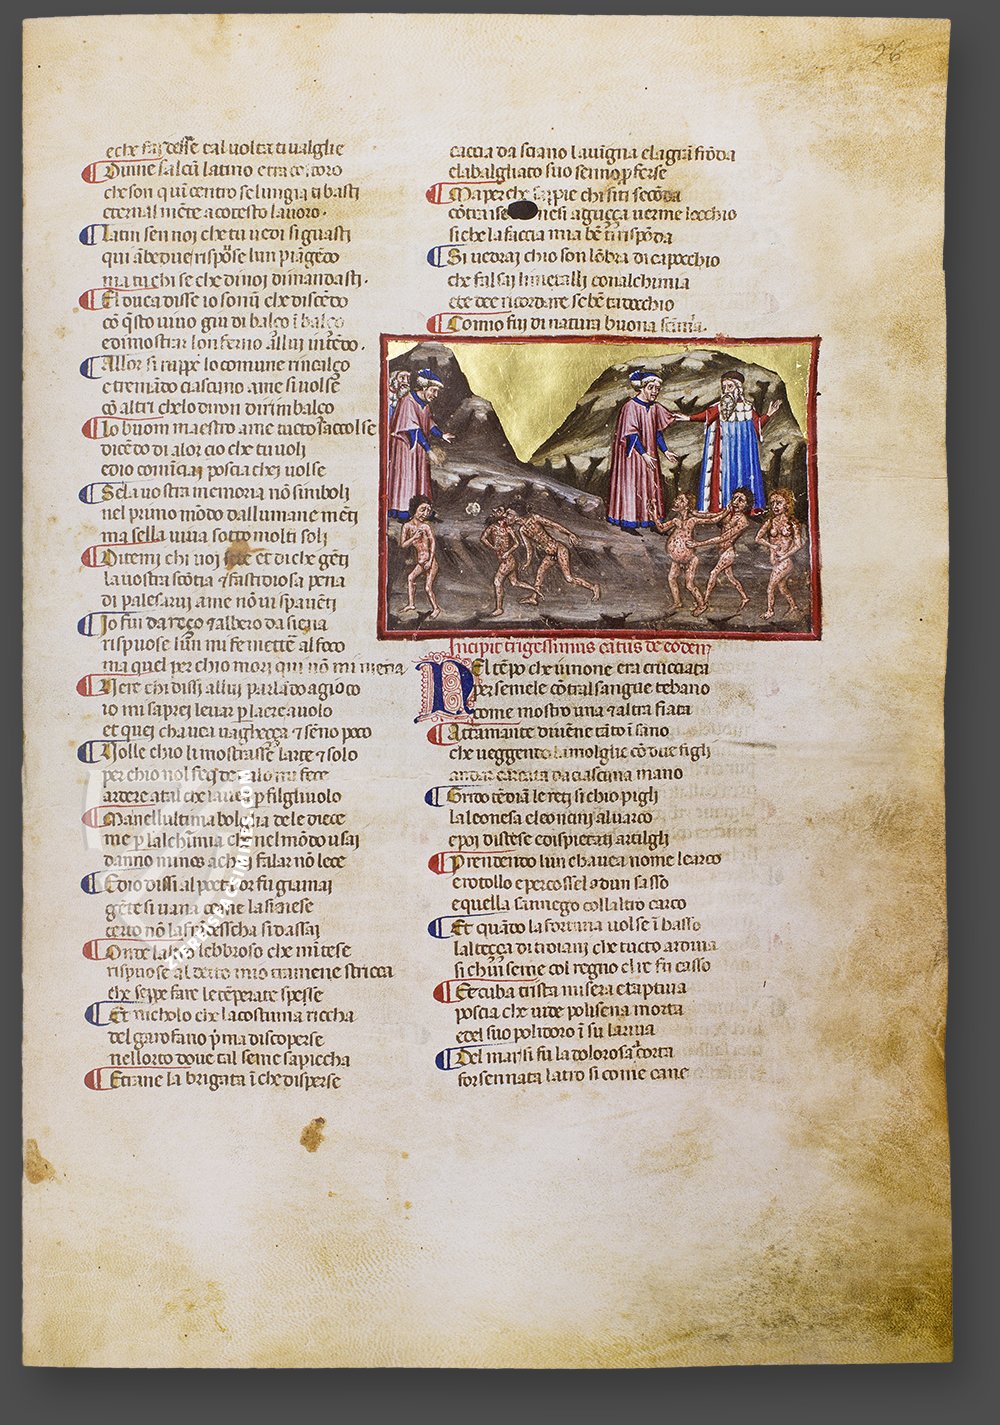 26
e che fai desse tal volta t tinalglie
Dinne salcũ latino e tra costoro
che son quiñcentro se lungia ti basti
eternalmẽte a cotesto lauoro.
Latin sen noi che tu uedi si guasti
qui ãbedue rispose lun piãgẽdo
ma tu chi se che di noi dimandasti.
El duca disse io son ũ che discẽdo
cõ q̃sto uiuo giu di balço ĩ balço
e di mostrar lonferno allui intẽdo.
Allor si ruppe lo comune rincalço
e tremãdo ciascuno a me si uolse
cõ altri che lo diron di rimbalço
Lo buom maestro a me tucto saccolse
dicẽdo di a lor cio che tu uoli
ed io comĩçai poscia chei uolse
Se la uostra memoria nõ simboli
nel primo mõdo dallumane mẽti
ma sella uiua sotto molti soli
Ditemi chi uoi sete et di che gẽti
la uostra scõtia e fastidiosa pena
di palesarui a me nõ ui spauẽti
Jo fui dareço e albero da siena
rispuose lun mi fe mettẽ al foco
ma quel per chio mori qui nõ mi mena
Uere chi dissi allui parlãdo a gioco
io mi saprei leuar p laere a uolo
et quei chauea uagheçça e seno poco
Uolle chio li mostrasse larte e solo
per chio nol feci dedalo mi fece
ardere a tal che lauea p filgliuolo
Ma nellultima bolgia de le diece
me p lalchimia che nel mõdo usai
danno minos a chui falar nõ lece
Ed io dissi al poeta or fu giamai
gẽte si uana come la sanese
certo nõ la frãcesscha si dassai
Onde laltro lebbroso che mĩtese
rispuose al detto mio tramene stricca
che seppe fare le tẽperate spesse
Et nicholo che la costuma riccha
del garofano p̃ma discoperse
nellorto doue tal seme sapiccha
Etrane la brigata ĩ che disperse
caccia da sciano la uigna e la grã frõda
e labalgliato suo senno p̃ferse
Ma per che sappie chi si ti secõda
cõtra i se nesi aguçça uerme locchio
si che la faccia mia bẽ ti rispõda
Si uedrai chio son lõbra di capocchio
che falsai li metalli con alchimia
ete dee ricordare se bẽ tadocchio
Comio fui di natura buona scimia.
Incipit trigessimus cãtus de eodem
Nel tẽpo che iunone era crucciata
per semele cõtral sangue tebano
come mostro una e altra fiata
Attamante diuẽne tãto ĩsano
che ueggendo la molglie cõ due figli
andar carcata da ciascuna mano
Grido tẽdiã le reti si chio pigli
la leonesa e leoncini al uarco
e poi distese i dispietati artilgli
Prendendo lun chauea nome learco
e rotollo e percosselo ad un sasso
e quella sannego collaltro carco
Et quãdo la fortuna uolse ĩ basso
lalteçça di troiani che tucto ardiua
si chinsieme col regno el re fu casso
Ecuba trista misera e captiua
poscia che uide polisena morta
e del suo polidoro ĩ su la riua
Del mar si fu la dolorosa corta
forsennata latro si come cane